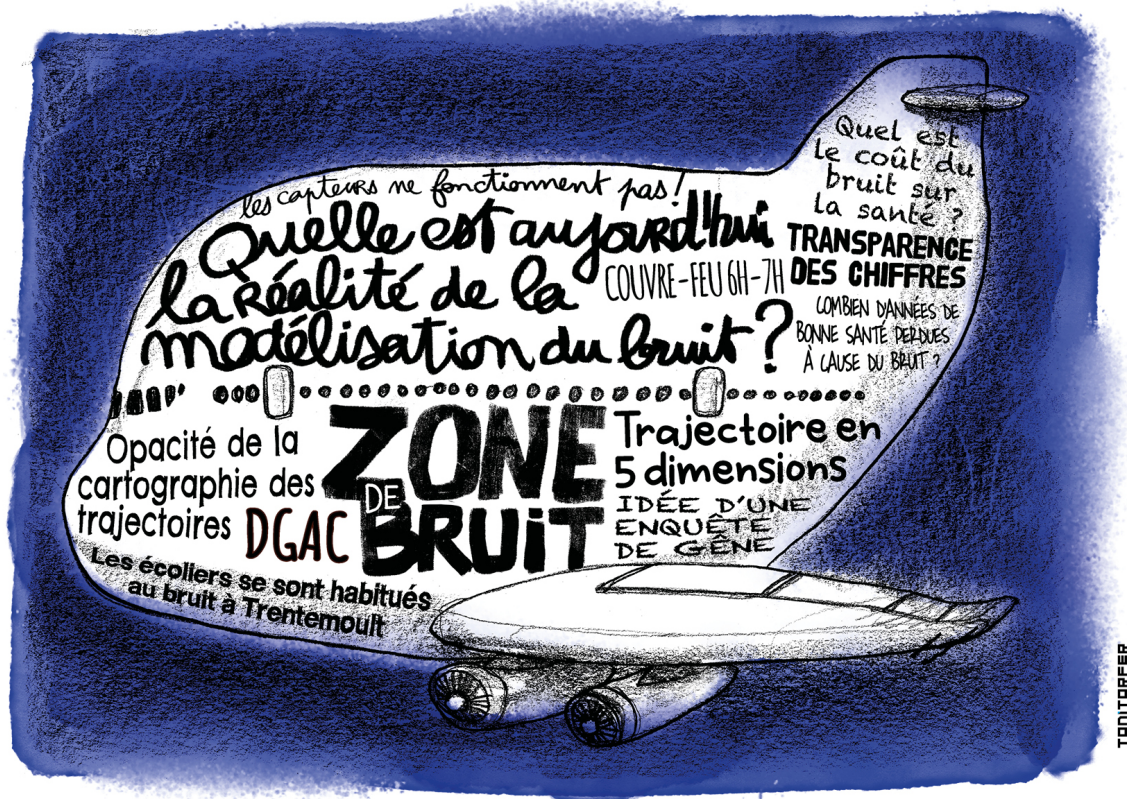 les capteurs ne fonctionnent pas!
Quelle est aujourd'hui
la réalité de la
modélisation du bruit ?
COUVRE-FEU 6H-7H
Quel est
le coût du
bruit sur
la santé ?
TRANSPARENCE
DES CHIFFRES
COMBIEN D'ANNÉES DE
BONNE SANTÉ PERDUES
À CAUSE DU BRUIT ?
Opacité de la
cartographie des
trajectoires
DGAC
ZONE
DE
BRUIT
Trajectoire en
5 dimensions
IDÉE D'UNE
ENQUÊTE
DE GÊNE
Les écoliers se sont habitués
au bruit à Trentemoult